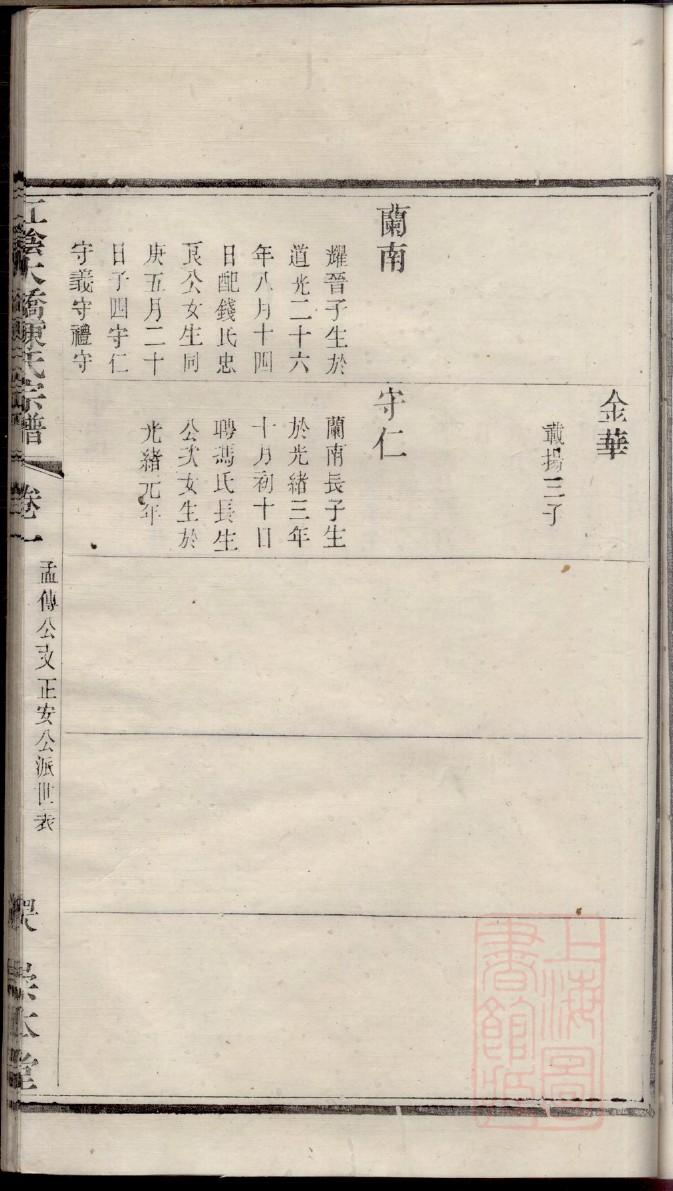 蘭南
耀晉子生於
道光二十六
年八月十四
日配錢氏忠
良公女生同
庚五月二十
日子四守仁
守義守禮守
金華
載揚三子
守仁
蘭南長子生
於光緒三年
十月初十日
聘馮氏長生
公次女生於
光緒元年
江陰大橋陳氏宗譜
卷一
孟傳公支正安公派世表
崇本堂
上海圖
書館藏